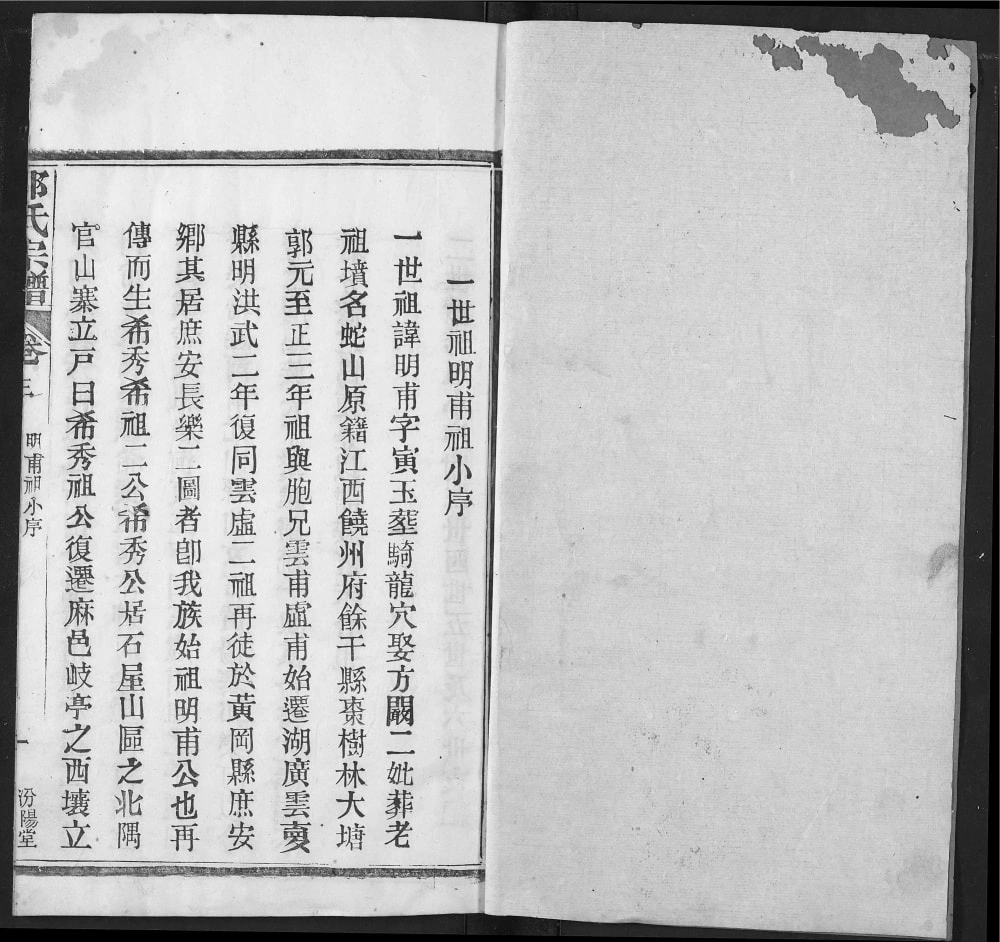 一世祖明甫祖小序
一世祖諱明甫字寅玉塟騎龍穴娶方闞二妣葬老
祖墳名蛇山原籍江西饒州府餘干縣棗樹林大塘
郭元至正三年祖與胞兄雲甫虛甫始遷湖廣雲夢
縣明洪武二年復同雲虛二祖再徒於黃岡縣庶安
鄉其居庶安長樂二圖者卽我族始祖明甫公也再
傳而生希秀希祖二公希秀公居石屋山區之北隅
官山寨立戸曰希秀祖公復遷麻邑岐亭之西壤立
郭氏宗譜 卷三 明甫祖小序 一 汾陽堂